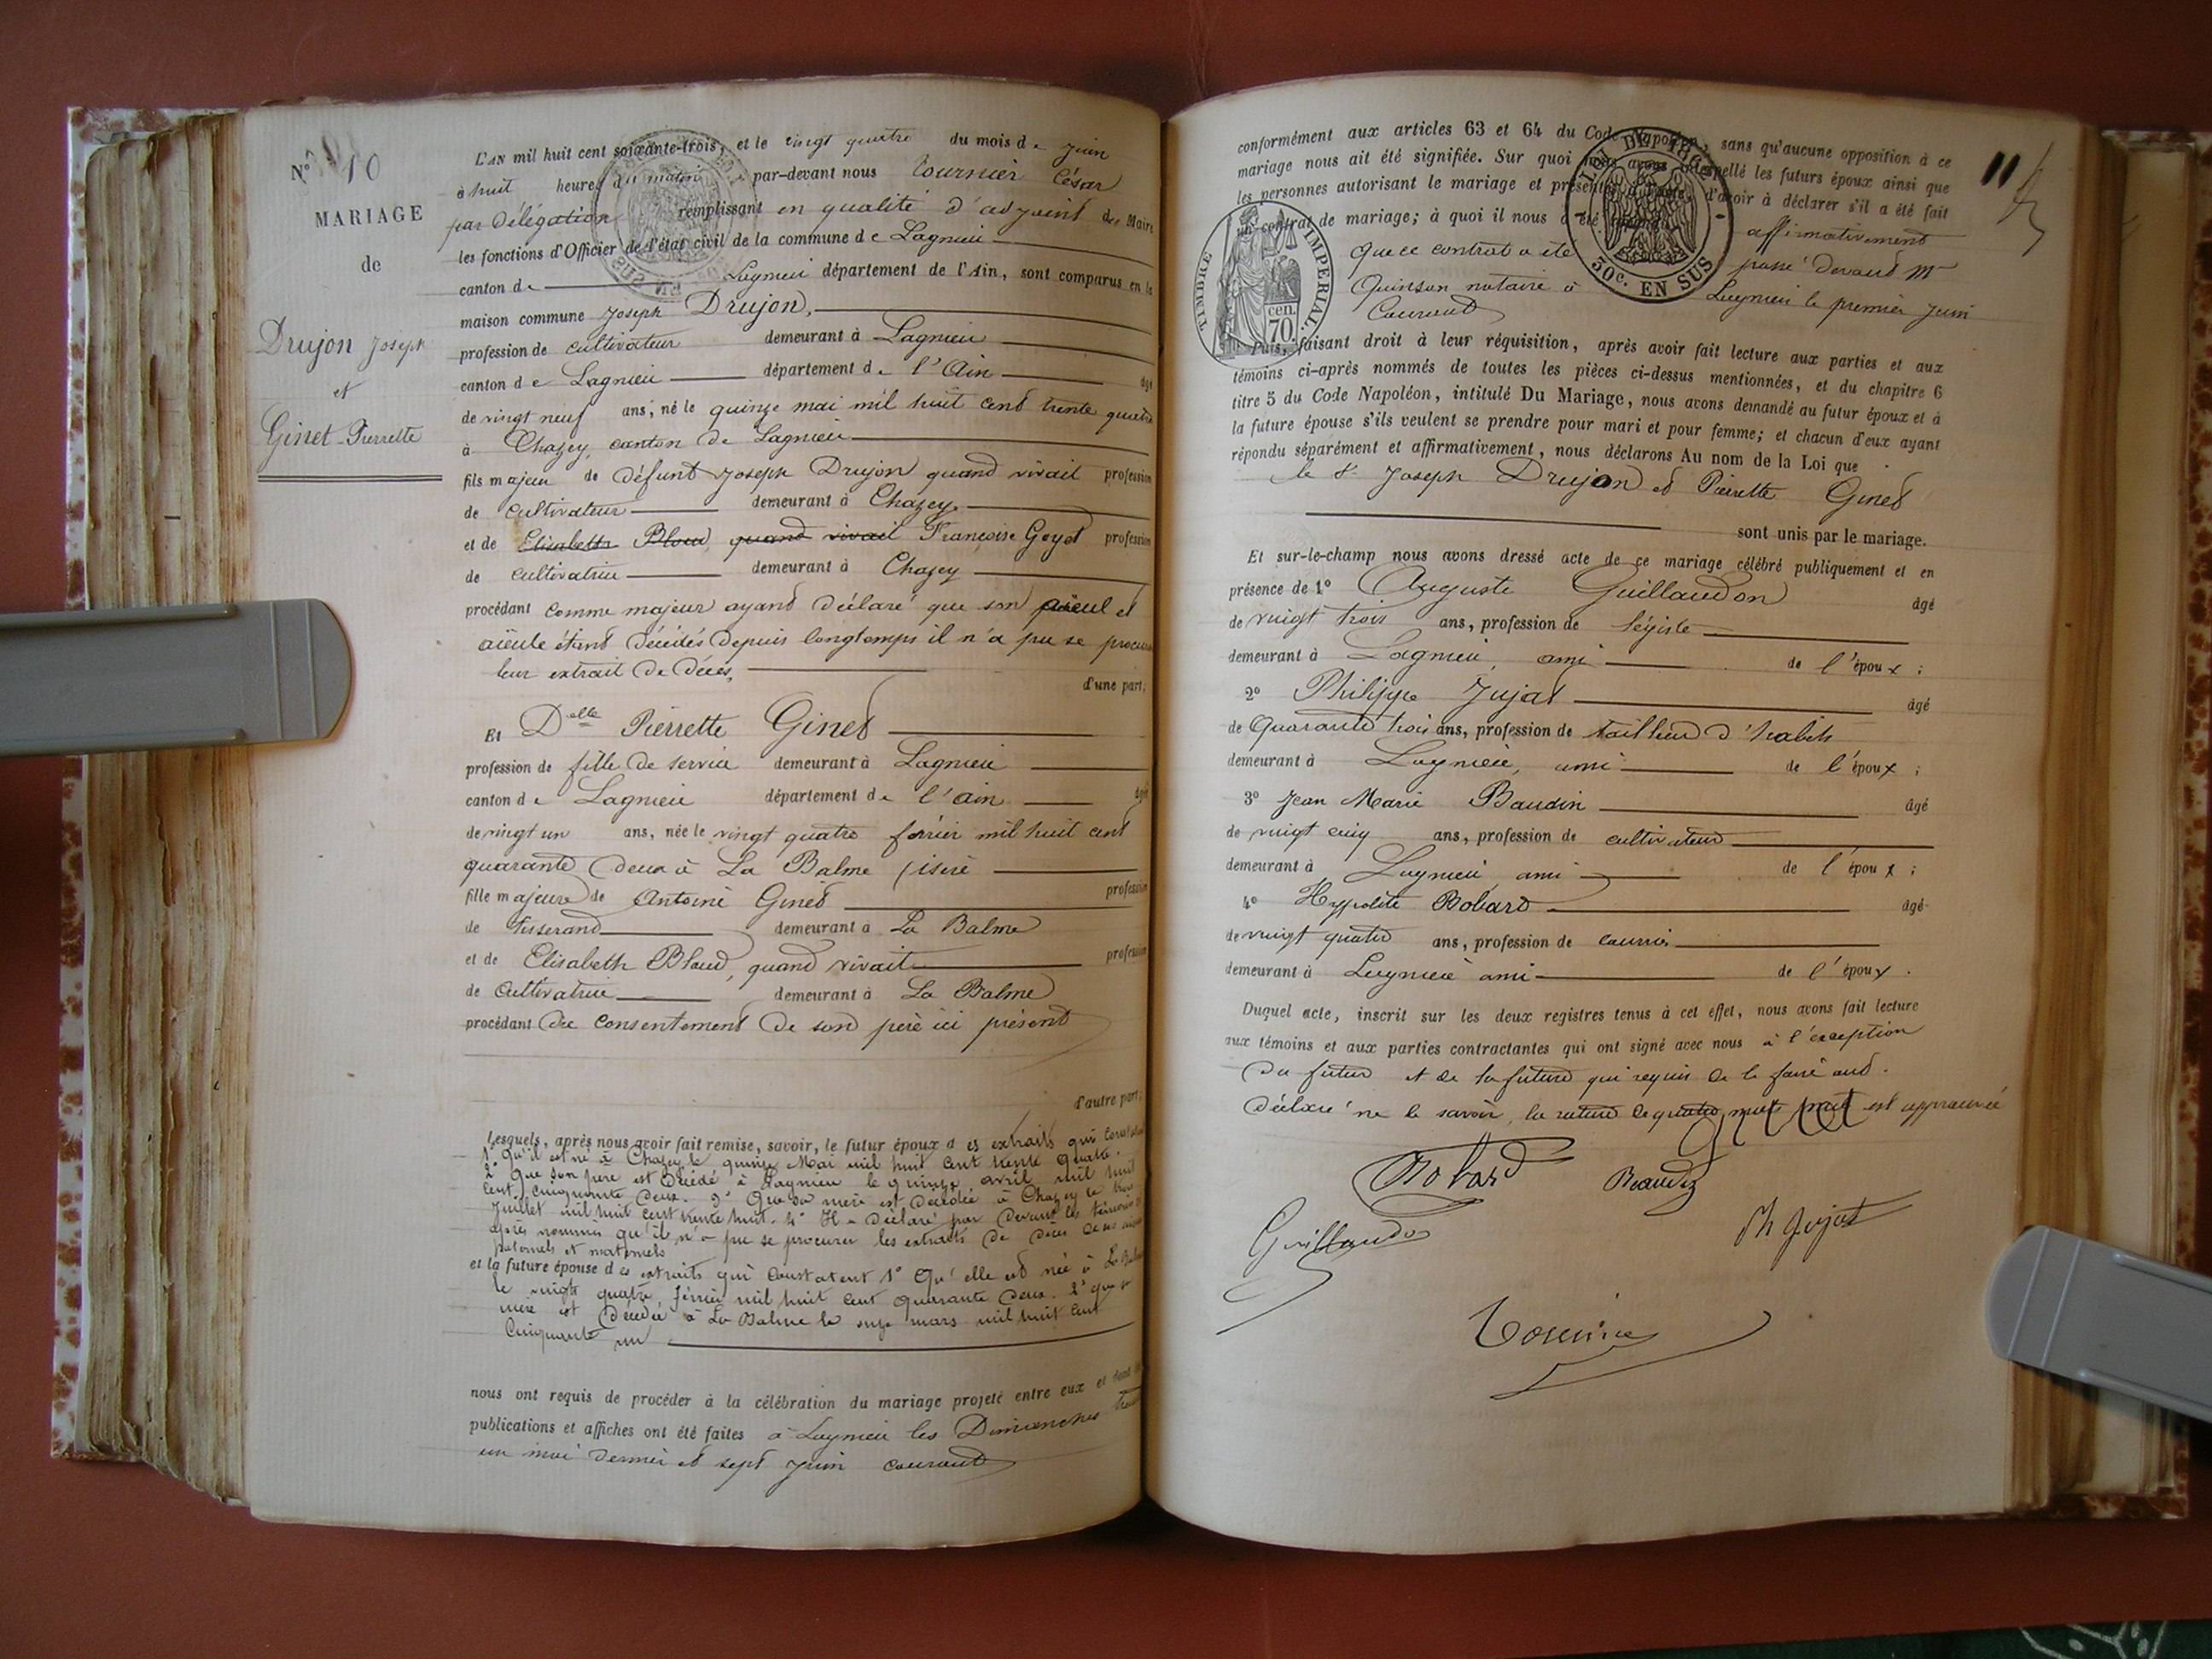 N° 10
MARIAGE
de
Drujon Joseph
et
Ginet Pierrette
L'AN mil huit cent soixante-trois, et le vingt quatre du mois de juin
à huit heures du matin par-devant nous Tournier César
par délégation remplissant en qualité d'adjoint des Maire
les fonctions d'Officier de l'état civil de la commune de Lagnieu
canton de Lagnieu département de l'Ain, sont comparus en la
maison commune Joseph Drujon,
profession de cultivateur demeurant à Lagnieu
canton de Lagnieu département de l'Ain âgé
de vingt neuf ans, né le quinze mai mil huit cent trente quatre
à Chazey, canton de Lagnieu
fils majeur de défunt Joseph Drujon quand vivait profession
de cultivateur demeurant à Chazey
et de Elisabeth Bloud, quand vivait Françoise Goyet profession
de cultivatrice demeurant à Chazey
procédant comme majeur ayant déclaré que son aïeul et
aïeule étant décédés depuis longtemps il n'a pu se procurer
leur extrait de décès,
d'une part;
Et Delle Pierrette Ginet
profession de fille de service demeurant à Lagnieu
canton de Lagnieu département de l'ain âgée
de vingt un ans, née le vingt quatre février mil huit cent
quarante deux à La Balme (isère
fille majeure de Antoine Ginet profession
de tisserand demeurant à La Balme
et de Elisabeth Bloud, quand vivait profession
de cultivatrice demeurant à La Balme
procédant du consentement de son père ici présent
d'autre part;
Lesquels, après nous avoir fait remise, savoir, le futur époux des extraits qui constatent
1° qu'il est né à Chazey le quinze Mai mil huit cent trente quatre.
2° Que son père est décédé à Lagnieu le quinze avril mil huit
cent cinquante deux. 3° Que sa mère est décédée à Chazey le trois
juillet mil huit cent trente huit. 4° Il a déclaré par devant les témoins
après nommés qu'il n'a pu se procurer les extraits de décès de ses aïeux
paternels et maternels
et la future épouse des extraits qui constatent 1° Qu'elle est née à La Balme
le vingt quatre février mil huit cent quarante deux. 2° que sa
mère est décédée à La Balme le onze mars mil huit cent
cinquante un
nous ont requis de procéder à la célébration du mariage projeté entre eux et dont les
publications et affiches ont été faites à Lagnieu les Dimanches trente
un mai dernier et sept juin courant
11
conformément aux articles 63 et 64 du Code Napoléon, sans qu'aucune opposition à ce
mariage nous ait été signifiée. Sur quoi nous avons interpellé les futurs époux ainsi que
les personnes autorisant le mariage et présentes à l'acte, d'avoir à déclarer s'il a été fait
un contrat de mariage; à quoi il nous a été répondu affirmativement
que ce contrat a été passé devant Me
Quinson notaire à Lagnieu le premier juin
Courant
TIMBRE IMPERIAL.
70 cen.
LOI DE
30c. EN SUS
Puis, faisant droit à leur réquisition, après avoir fait lecture aux parties et aux
témoins ci-après nommés de toutes les pièces ci-dessus mentionnées, et du chapitre 6
titre 5 du Code Napoléon, intitulé Du Mariage, nous avons demandé au futur époux et à
la future épouse s'ils veulent se prendre pour mari et pour femme; et chacun d'eux ayant
répondu séparément et affirmativement, nous déclarons Au nom de la Loi que
le Sr Joseph Drujon et Pierrette Ginet
sont unis par le mariage.
Et sur-le-champ nous avons dressé acte de ce mariage célébré publiquement et en
présence de 1° Auguste Guillaudon âgé
de vingt trois ans, profession de légiste
demeurant à Lagnieu, ami de l'époux;
2° Philippe Jujat âgé
de Quarante trois ans, profession de tailleur d'habits
demeurant à Lagnieu, ami de l'époux;
3° Jean Marie Baudin âgé
de vingt cinq ans, profession de cultivateur
demeurant à Lagnieu ami de l'époux;
4° Hyppolite Bobard âgé
de vingt quatre ans, profession de
demeurant à Lagnieu ami de l'époux.
Duquel acte, inscrit sur les deux registres tenus à cet effet, nous avons fait lecture
aux témoins et aux parties contractantes qui ont signé avec nous à l'exception
du futur et de la future qui requis de le faire ont
déclaré ne le savoir, la rature de quatre mots est approuvée
Bobard
Baudin
Guillaudon
Ph Jujat
Tournier